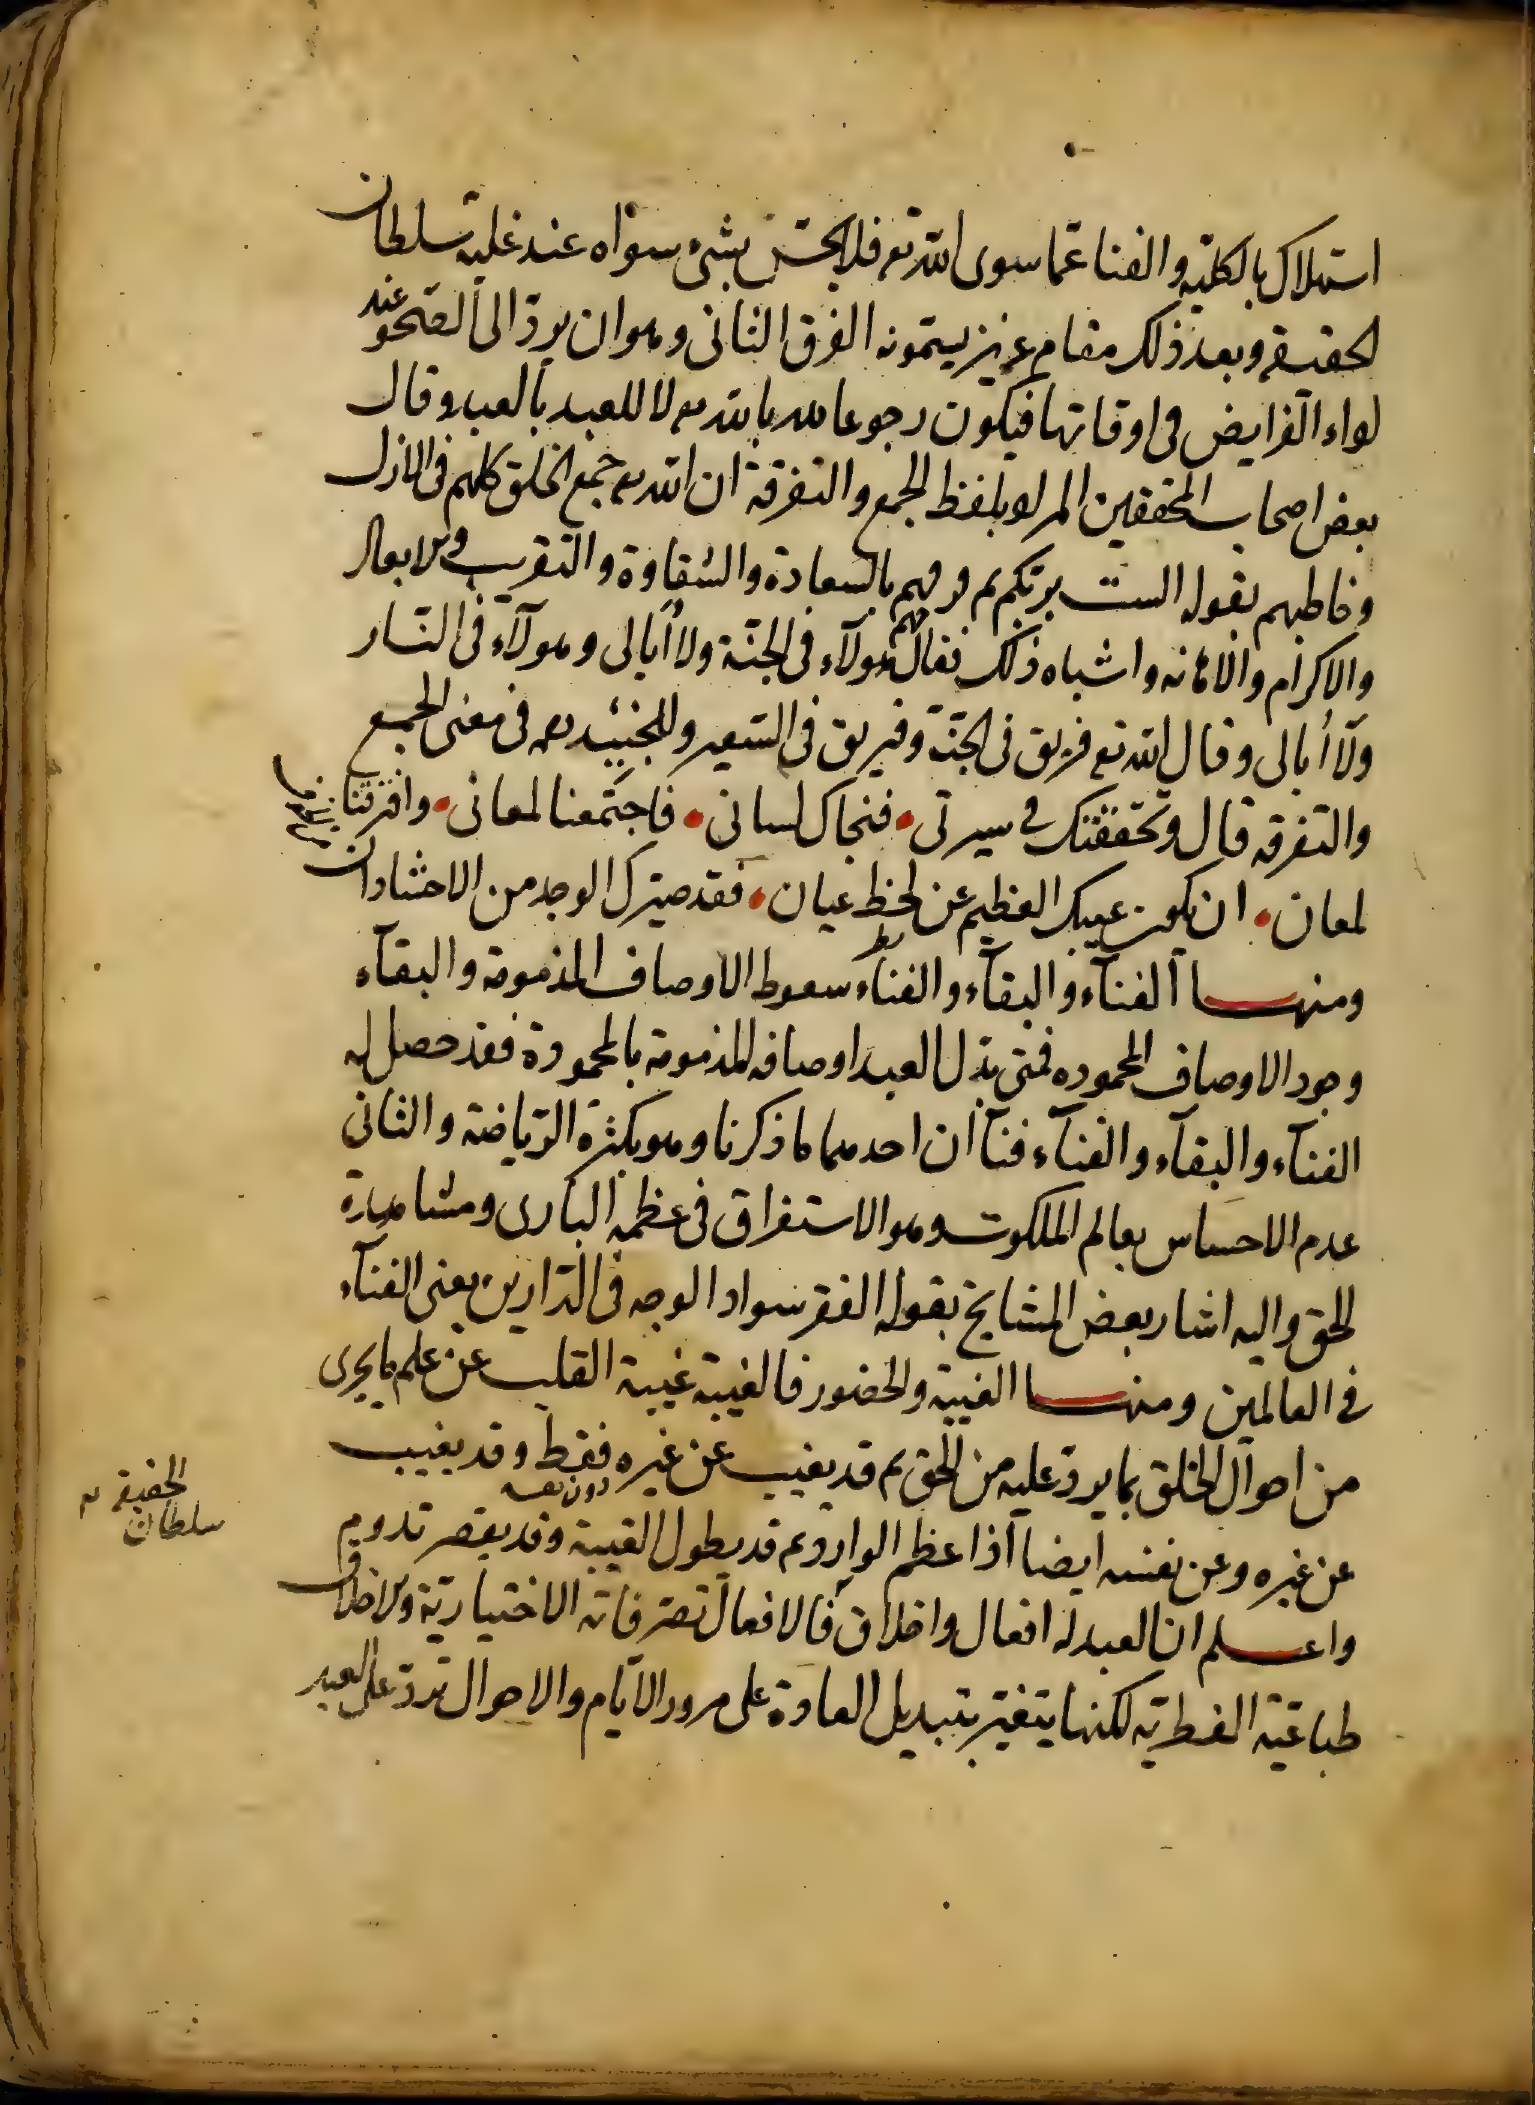 استهلاك بالكلية والفنا عما سوى الله تع فلا يحس بشئ سواه عند غلبة سلطان
الحقيقة وبعد ذلك مقام عزيز يسمونه الفرق الثانى وهو ان يردّ الى الصحو عند
اداء الفرايض فى اوقاتها فيكون رجوعا لله بالله تع لا للعبد بالعبد وقال
بعض اصحاب المحققين المراد بلفظ الجمع والتفرقة ان الله تع جمع الخلق كلهم فى الازل
وخاطبهم بقوله الست بربكم ثم فرقهم بالسعادة والشقاوة والتقريب والابعاد
والاكرام والاهانه واشباه ذلك فقال هؤلآء فى الجنّة ولا أبالى وهولآء فى النّار
ولا أبالى وقال الله تع فريق فى الجنّة وفريق فى السّعير وللجنيد ره فى معنى الجمع
والتفرقه قال وتحققتك في سيرتى • فنجاك لسانى • فاجتمعنا لمعانى • وافترقنا
لمعان • ان يكن غيبك العظيم عن لحظ عيان • فقد صيّرك الوجد من الاحشاء دان
ومنها الفنآء والبقآء والفنآء سقوط الاوصاف المذمومة والبقآء
وجود الاوصاف المحموده فمتى بدّل العبد اوصافه المذمومة بالمحمودة فقد حصل له
الفنآء والبقآء والفنآء فنآأن احدهما ما ذكرنا وهو بكثرة الرّياضة والثانى
عدم الاحساس بعالم الملكوت وهو الاستغراق فى عظمة البارى ومشاهدة
الحق واليه اشار بعض المشايخ بقوله الفقر سواد الوجه فى الدّارين يعنى الفنآء
في العالمين ومنها الغيبة والحضور فالغيبة غيبة القلب عن علم ما يجرى
من احوال الخلق بما يرد عليه من الحق ثم قد يغيب عن غيره فقط وقد يغيب
دون نفسه
عن غيره وعن نفسه ايضا اذا عظم الوارد ثم قد يطول الغيبة وقد يقصر تدوم
واعلم ان العبد له افعال واخلاق فالافعال تصرفاته الاختياريّة والاخلاق
طباعيّة الفطريّه لكنها يتغيّر بتبديل العادة على مرور الايّام والاحوال ترد على العبد
الحقيقة
سلطان